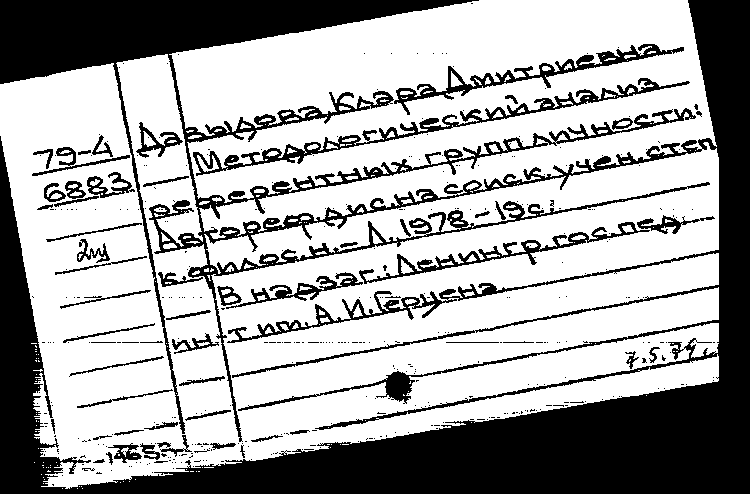 79-4 Давыдова, Клара Дмитриевна
6883 Методологический анализ
референтных групп личности:
2щ Автореф. дис. на соиск. учен. степ
к. филос. н. - Л., 1978. - 19 с.
В надзаг.: Ленингр. гос. пед.
ин-т им. А. И. Герцена.
7.5.79 г.